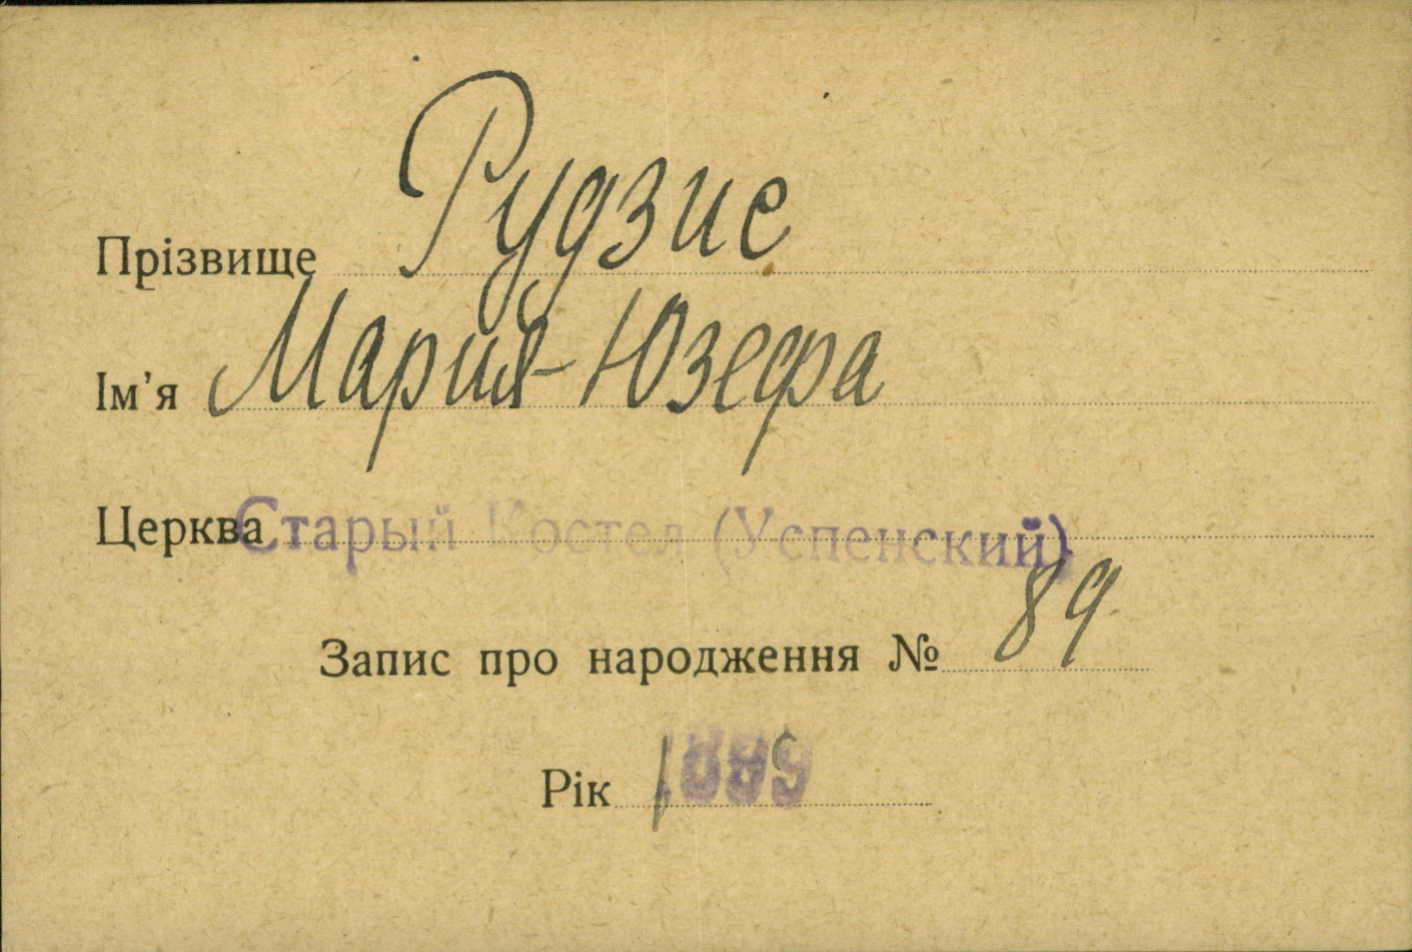 Прізвище Рудзис
Ім'я Мария-Юзефа
Церква Старый Костел (Успенский)
Запис про народження № 89
Рік